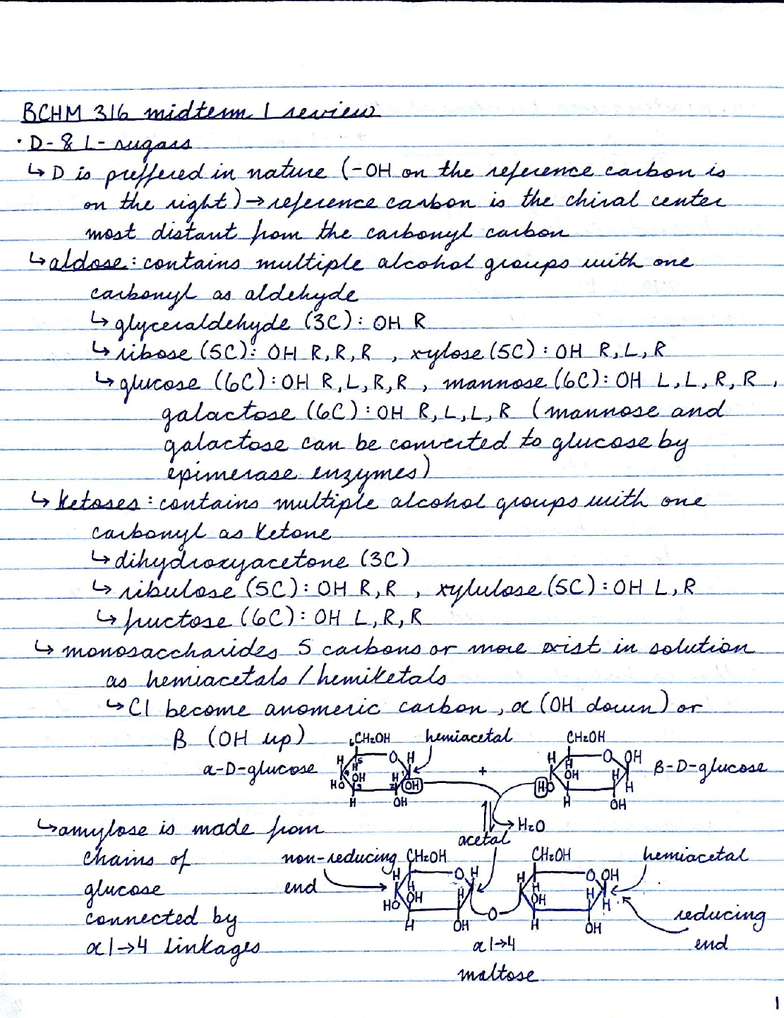 BCHM 316 midterm 1 review
· D- & L- sugars
↳ D is preffered in nature (-OH on the reference carbon is
on the right) → reference carbon is the chiral center
most distant from the carbonyl carbon
↳ aldose: contains multiple alcohol groups with one
carbonyl as aldehyde
↳ glyceraldehyde (3C): OH R
↳ ribose (5C): OH R,R,R , xylose (5C): OH R,L,R
↳ glucose (6C): OH R,L,R,R , mannose (6C): OH L,L,R,R ,
galactose (6C): OH R,L,L,R (mannose and
galactose can be converted to glucose by
epimerase enzymes)
↳ ketoses: contains multiple alcohol groups with one
carbonyl as ketone
↳ dihydroxyacetone (3C)
↳ ribulose (5C): OH R,R , xylulose (5C): OH L,R
↳ fructose (6C): OH L,R,R
↳ monosaccharides 5 carbons or more exist in solution
as hemiacetals / hemiketals
↳ C1 become anomeric carbon, α (OH down) or
β (OH up)
6CH₂OH hemiacetal CH₂OH
α-D-glucose H H H O H HO OH H OH H OH + H H O OH HO OH H H H OH β-D-glucose
→ H₂O
↳ amylose is made from
chains of
glucose
connected by
α1→4 linkages
acetal
non-reducing end CH₂OH CH₂OH hemiacetal
H H O H HO OH H H OH O H H O OH OH H H H OH
reducing end
α1→4
maltose
1